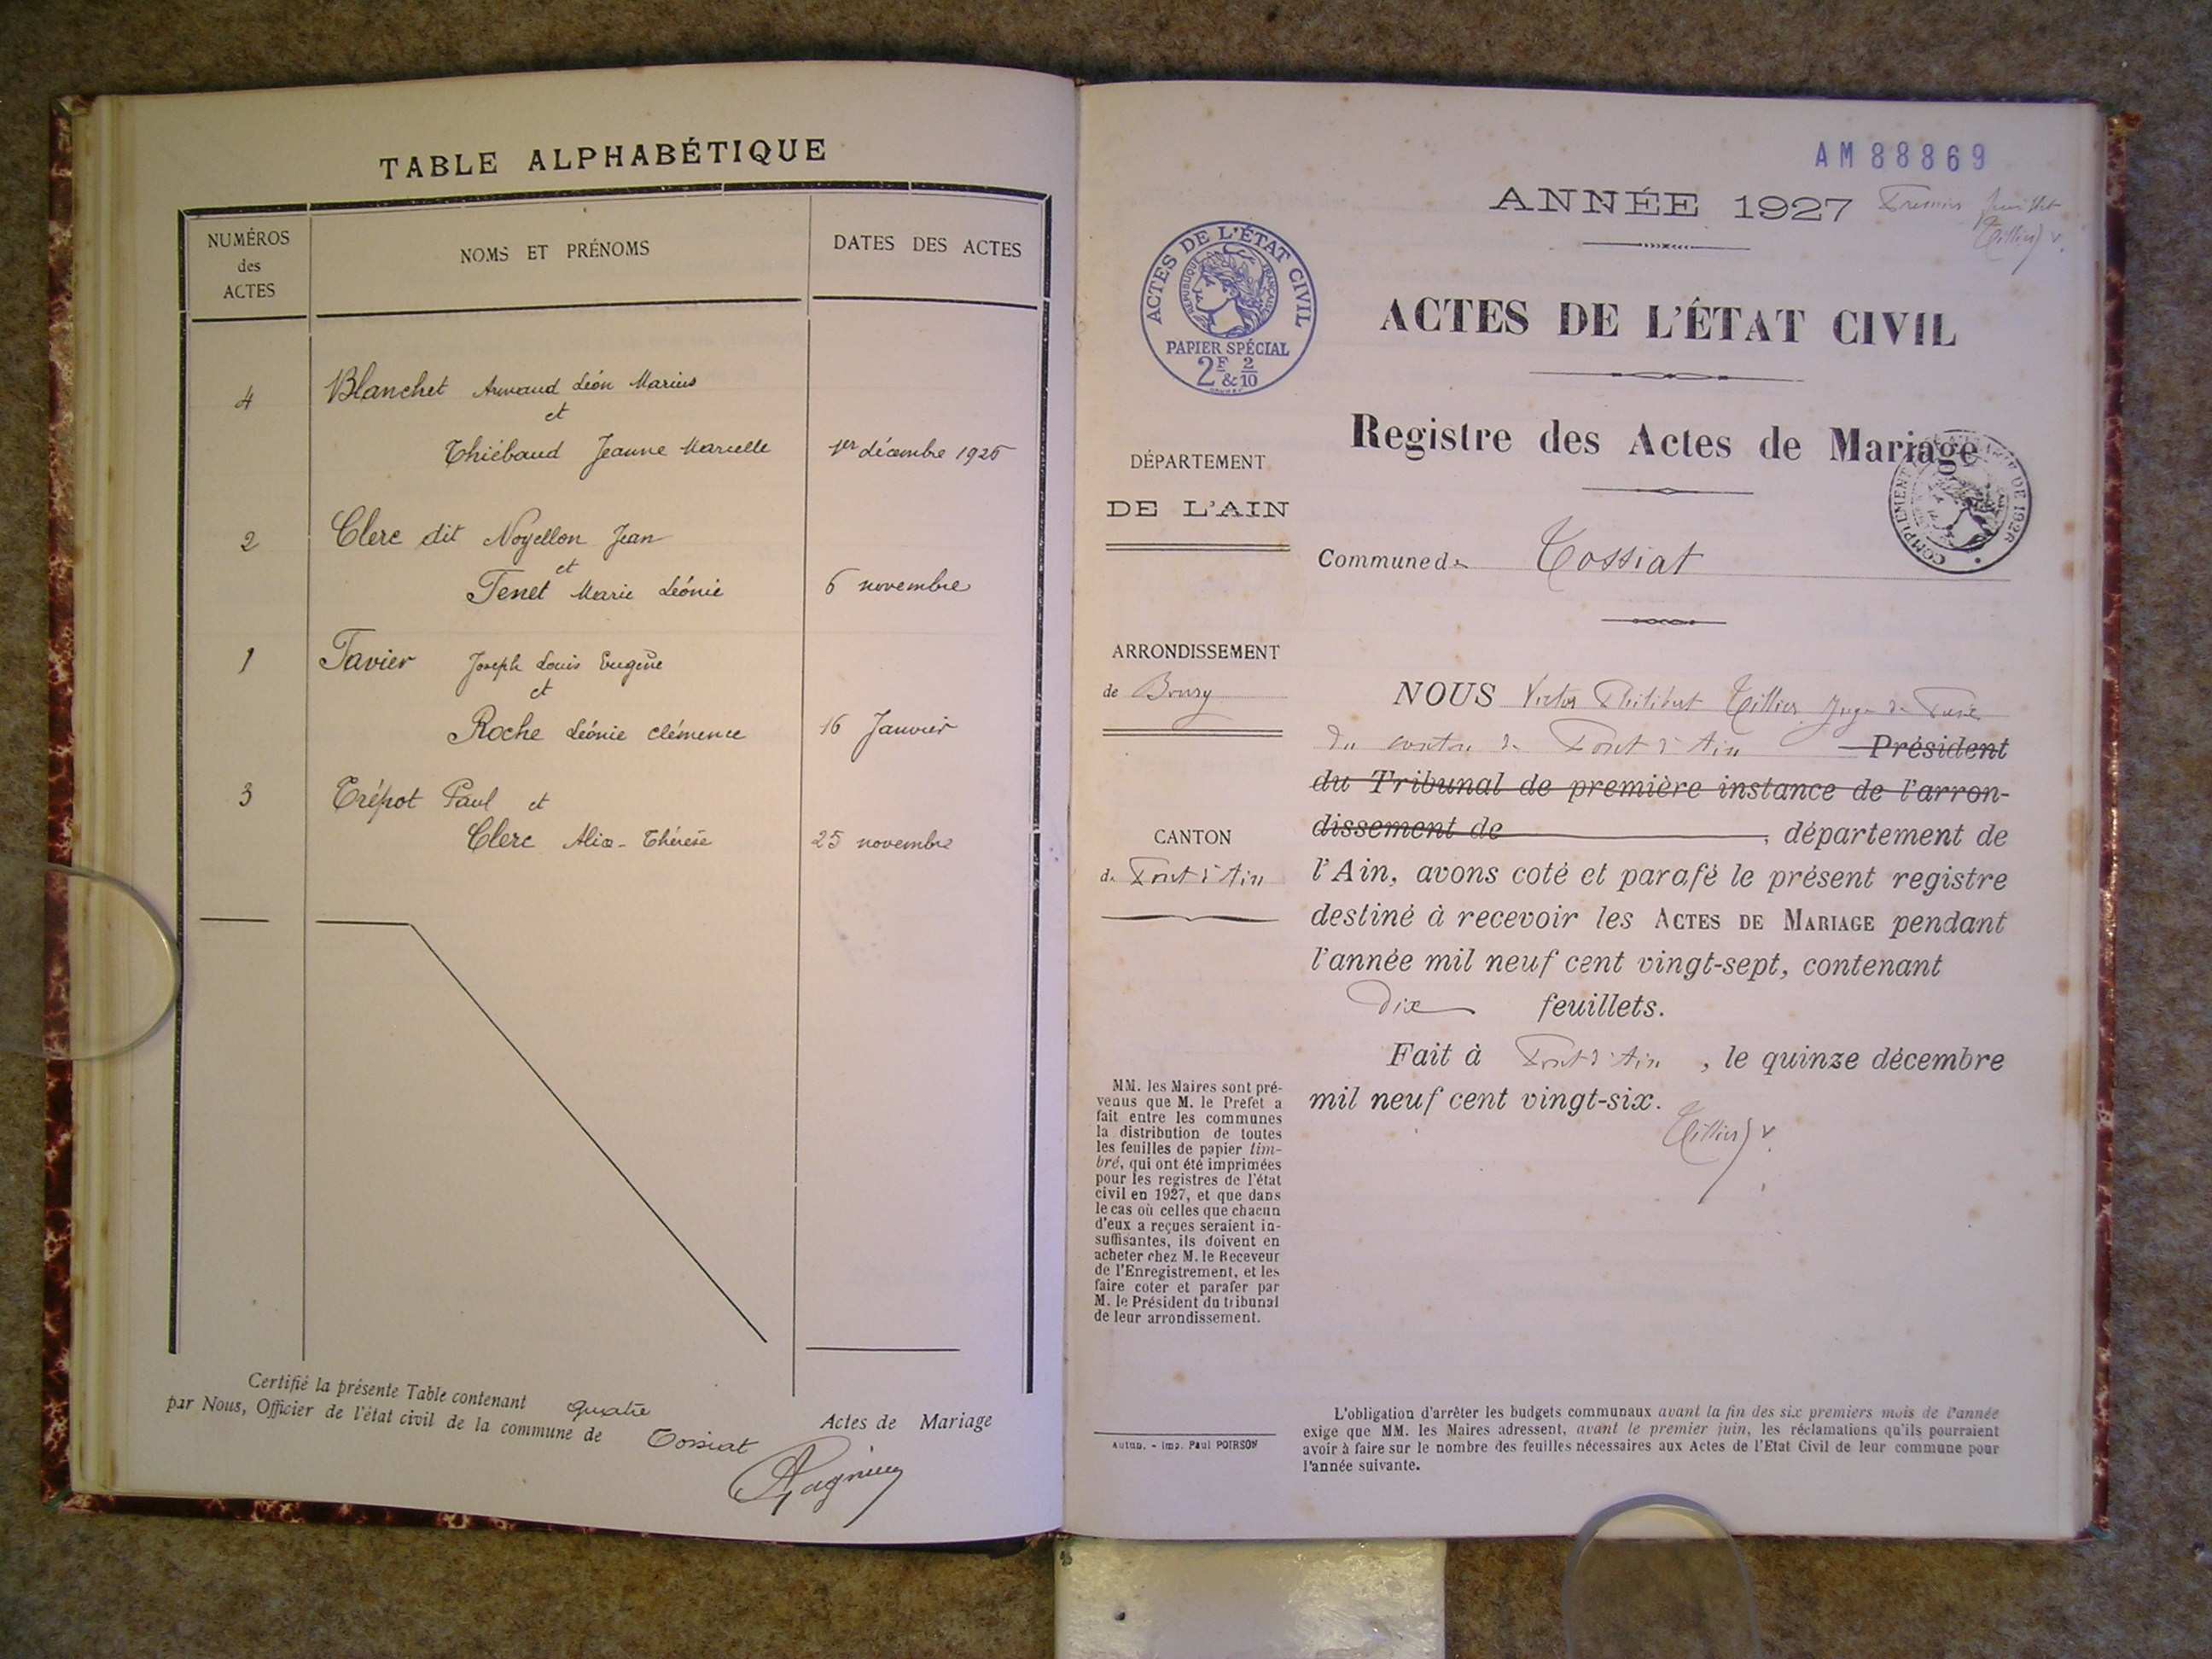 TABLE ALPHABÉTIQUE
NUMÉROS
des
ACTES
NOMS ET PRÉNOMS
DATES DES ACTES
4
Blanchet Armand Léon Marius
et
Thiébaud Jeanne Marcelle
1er décembre 1926
2
Clerc dit Noyellon Jean
et
Tenet Marie Léonie
6 novembre
1
Tavier Joseph Louis Eugène
et
Roche Léonie Clémence
16 Janvier
3
Trépot Paul et
Clerc Alix-Thérèse
25 novembre
Certifié la présente Table contenant quatre Actes de Mariage
par Nous, Officier de l'état civil de la commune de Tossiat
AM 88869
ANNÉE 1927
Premier feuillet
Tillier V.
ACTES DE L'ÉTAT CIVIL
RÉPUBLIQUE FRANÇAISE
PAPIER SPÉCIAL
2F & 2/10
ACTES DE L'ÉTAT CIVIL
Registre des Actes de Mariage
COMPLÉMENT DE
DÉPARTEMENT
DE L'AIN
Commune de Tossiat
ARRONDISSEMENT
de Bourg
CANTON
de Pont d'Ain
NOUS Victor Philibert Tillier Juge de Paix
du canton de Pont d'Ain Président
du Tribunal de première instance de l'arron-
dissement de , département de
l'Ain, avons coté et parafé le présent registre
destiné à recevoir les ACTES DE MARIAGE pendant
l'année mil neuf cent vingt-sept, contenant
dix feuillets.
Fait à Pont d'Ain , le quinze décembre
mil neuf cent vingt-six.
Tillier V.
MM. les Maires sont pré-
venus que M. le Préfet a
fait entre les communes
la distribution de toutes
les feuilles de papier tim-
bré, qui ont été imprimées
pour les registres de l'état
civil en 1927, et que dans
le cas où celles que chacun
d'eux a reçues seraient in-
suffisantes, ils doivent en
acheter chez M. le Receveur
de l'Enregistrement, et les
faire coter et parafer par
M. le Président du tribunal
de leur arrondissement.
Autun. - Imp. Paul POIRSON
L'obligation d'arrêter les budgets communaux avant la fin des six premiers mois de l'année
exige que MM. les Maires adressent, avant le premier juin, les réclamations qu'ils pourraient
avoir à faire sur le nombre des feuilles nécessaires aux Actes de l'Etat Civil de leur commune pour
l'année suivante.